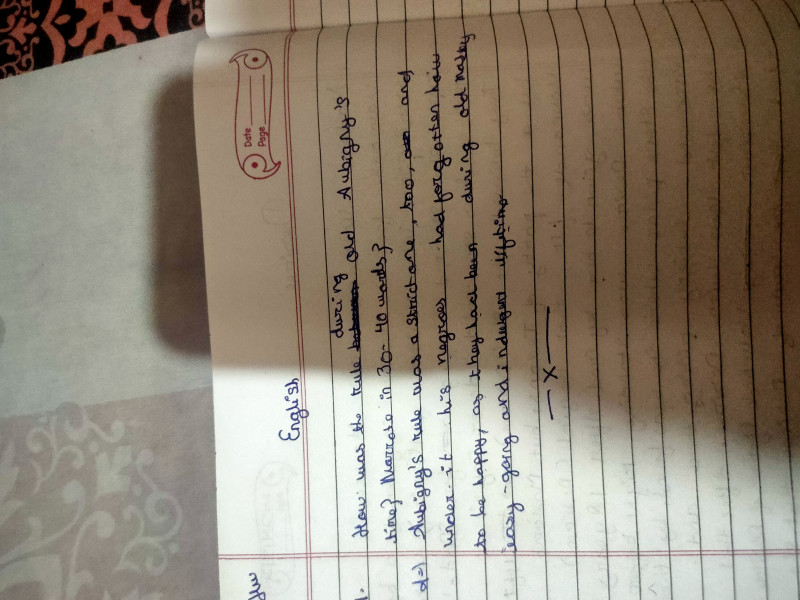 Date
Page
English
1. How was the rule during old Aubigny's
time? Narrate in 30-40 words?
d=) Aubigny's rule was a strict one, too, and
under it his negroes had forgotten how
to be happy, as they had been during old
easy-going and indulgent lifetime.
— x —